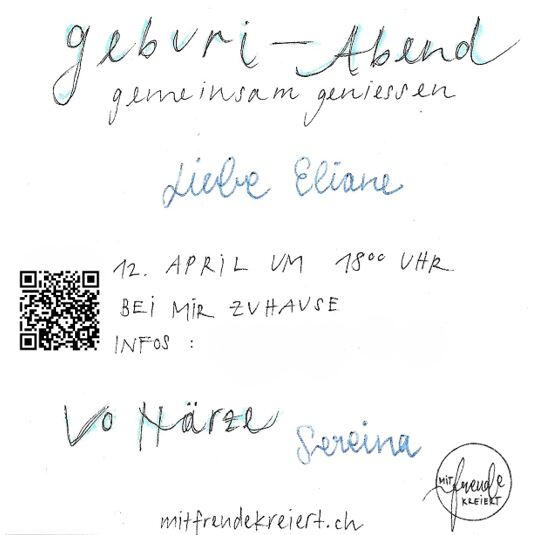 geburi - Abend
gemeinsam geniessen
Liebe Eliane
12. APRIL UM 18⁰⁰ UHR
BEI MIR ZUHAUSE
INFOS :
Vo Härze
Sereina
MIT
freude
KREIERT
mitfreudekreiert.ch